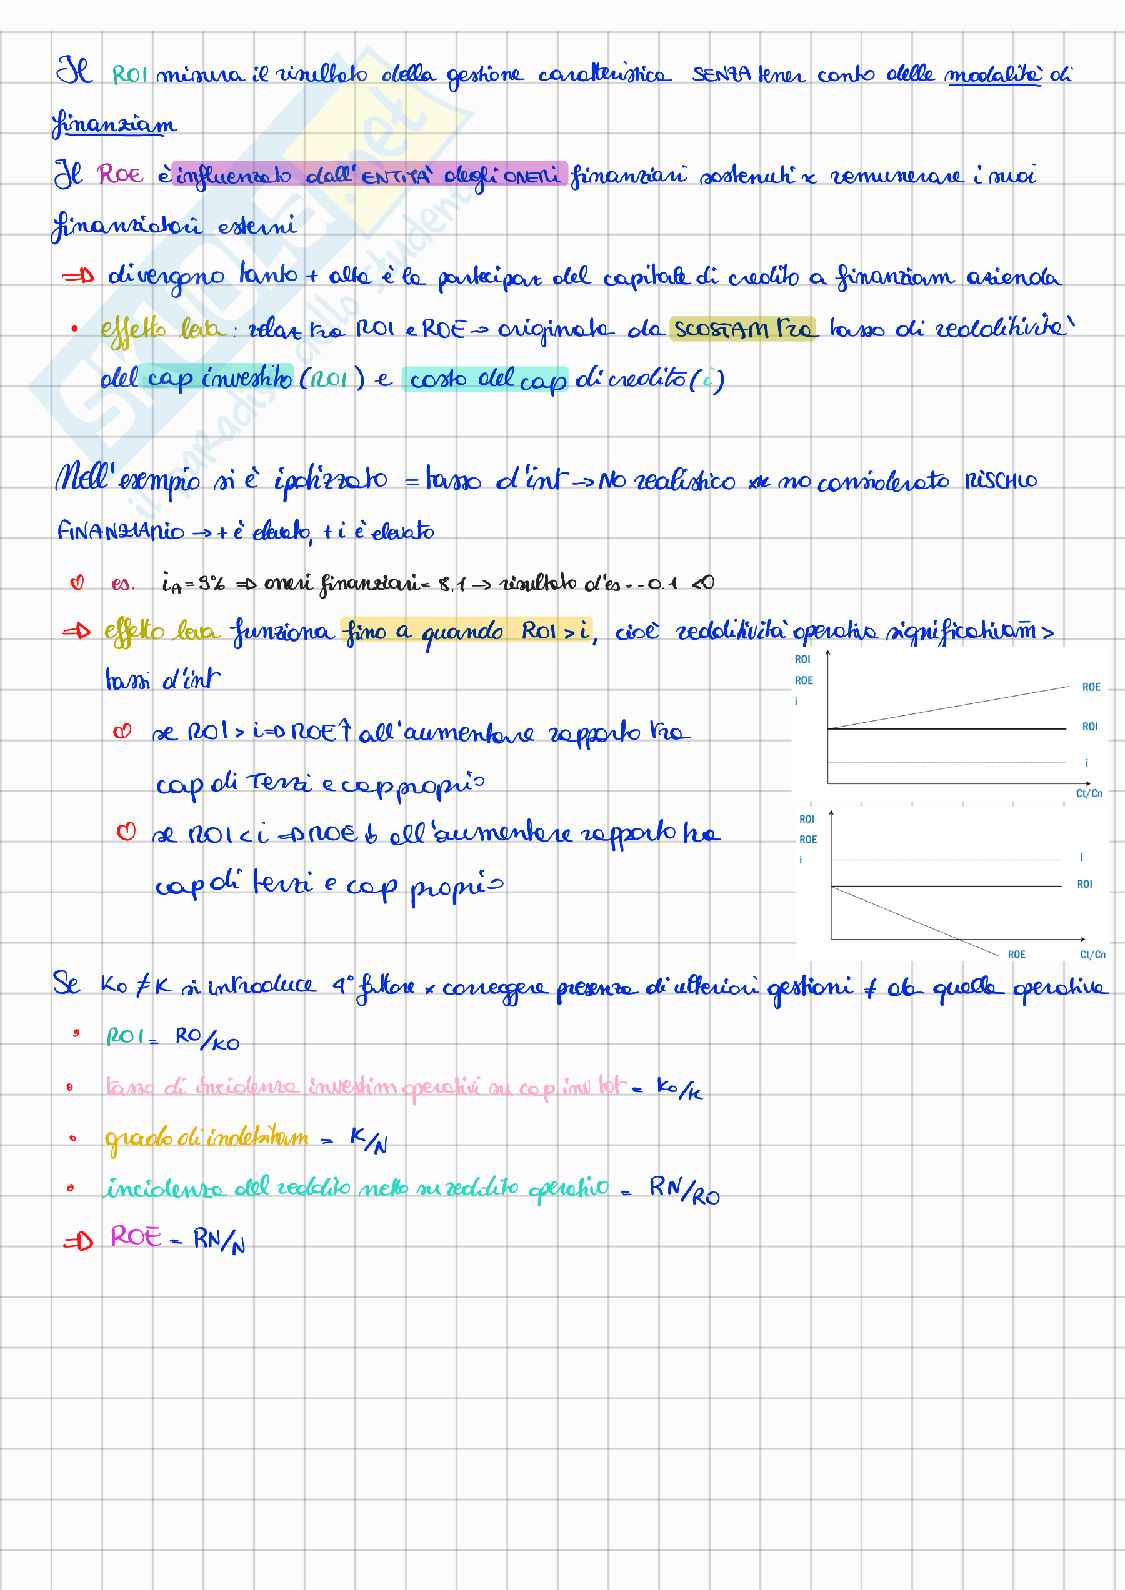 Il ROI misura il risultato della gestione caratteristica SENZA tener conto delle modalità di
finanziam
Il ROE è influenzato dall'ENTITÀ degli ONERI finanziari sostenuti x remunerare i suoi
finanziatori esterni
⇒ divergono tanto + alta è la partecipaz del capitale di credito a finanziam azienda
• effetto leva: relaz tra ROI e ROE → originata da SCOSTAM tra tasso di redditività
del cap investito (ROI) e costo del cap di credito (i)
Nell'esempio si è ipotizzato = tasso d'int → NO realistico x no considerato RISCHIO
FINANZIARIO → + è elevato, + i è elevato
es. iA = 9% ⇒ oneri finanziari = 8,1 → risultato d'es = -0.1 <0
⇒ effetto leva funziona fino a quando ROI > i, cioè redditività operativa significativam >
tassi d'int
se ROI > i ⇒ ROE ↑ all'aumentare rapporto tra
cap di Terzi e cap proprio
se ROI < i ⇒ ROE ↓ all'aumentare rapporto tra
cap di terzi e cap proprio
ROI
ROE
i
ROE
ROI
i
Ct/Cn
ROI
ROE
i
i
ROI
ROE
Ct/Cn
Se Ko ≠ K si introduce 4° fattore x correggere presenza di ulteriori gestioni ≠ da quella operativa
• ROI = RO/KO
• tasso di incidenza investim operativi su cap inv tot = Ko/K
• grado di indebitam = K/N
• incidenza del reddito netto su reddito operativo = RN/RO
⇒ ROE = RN/N